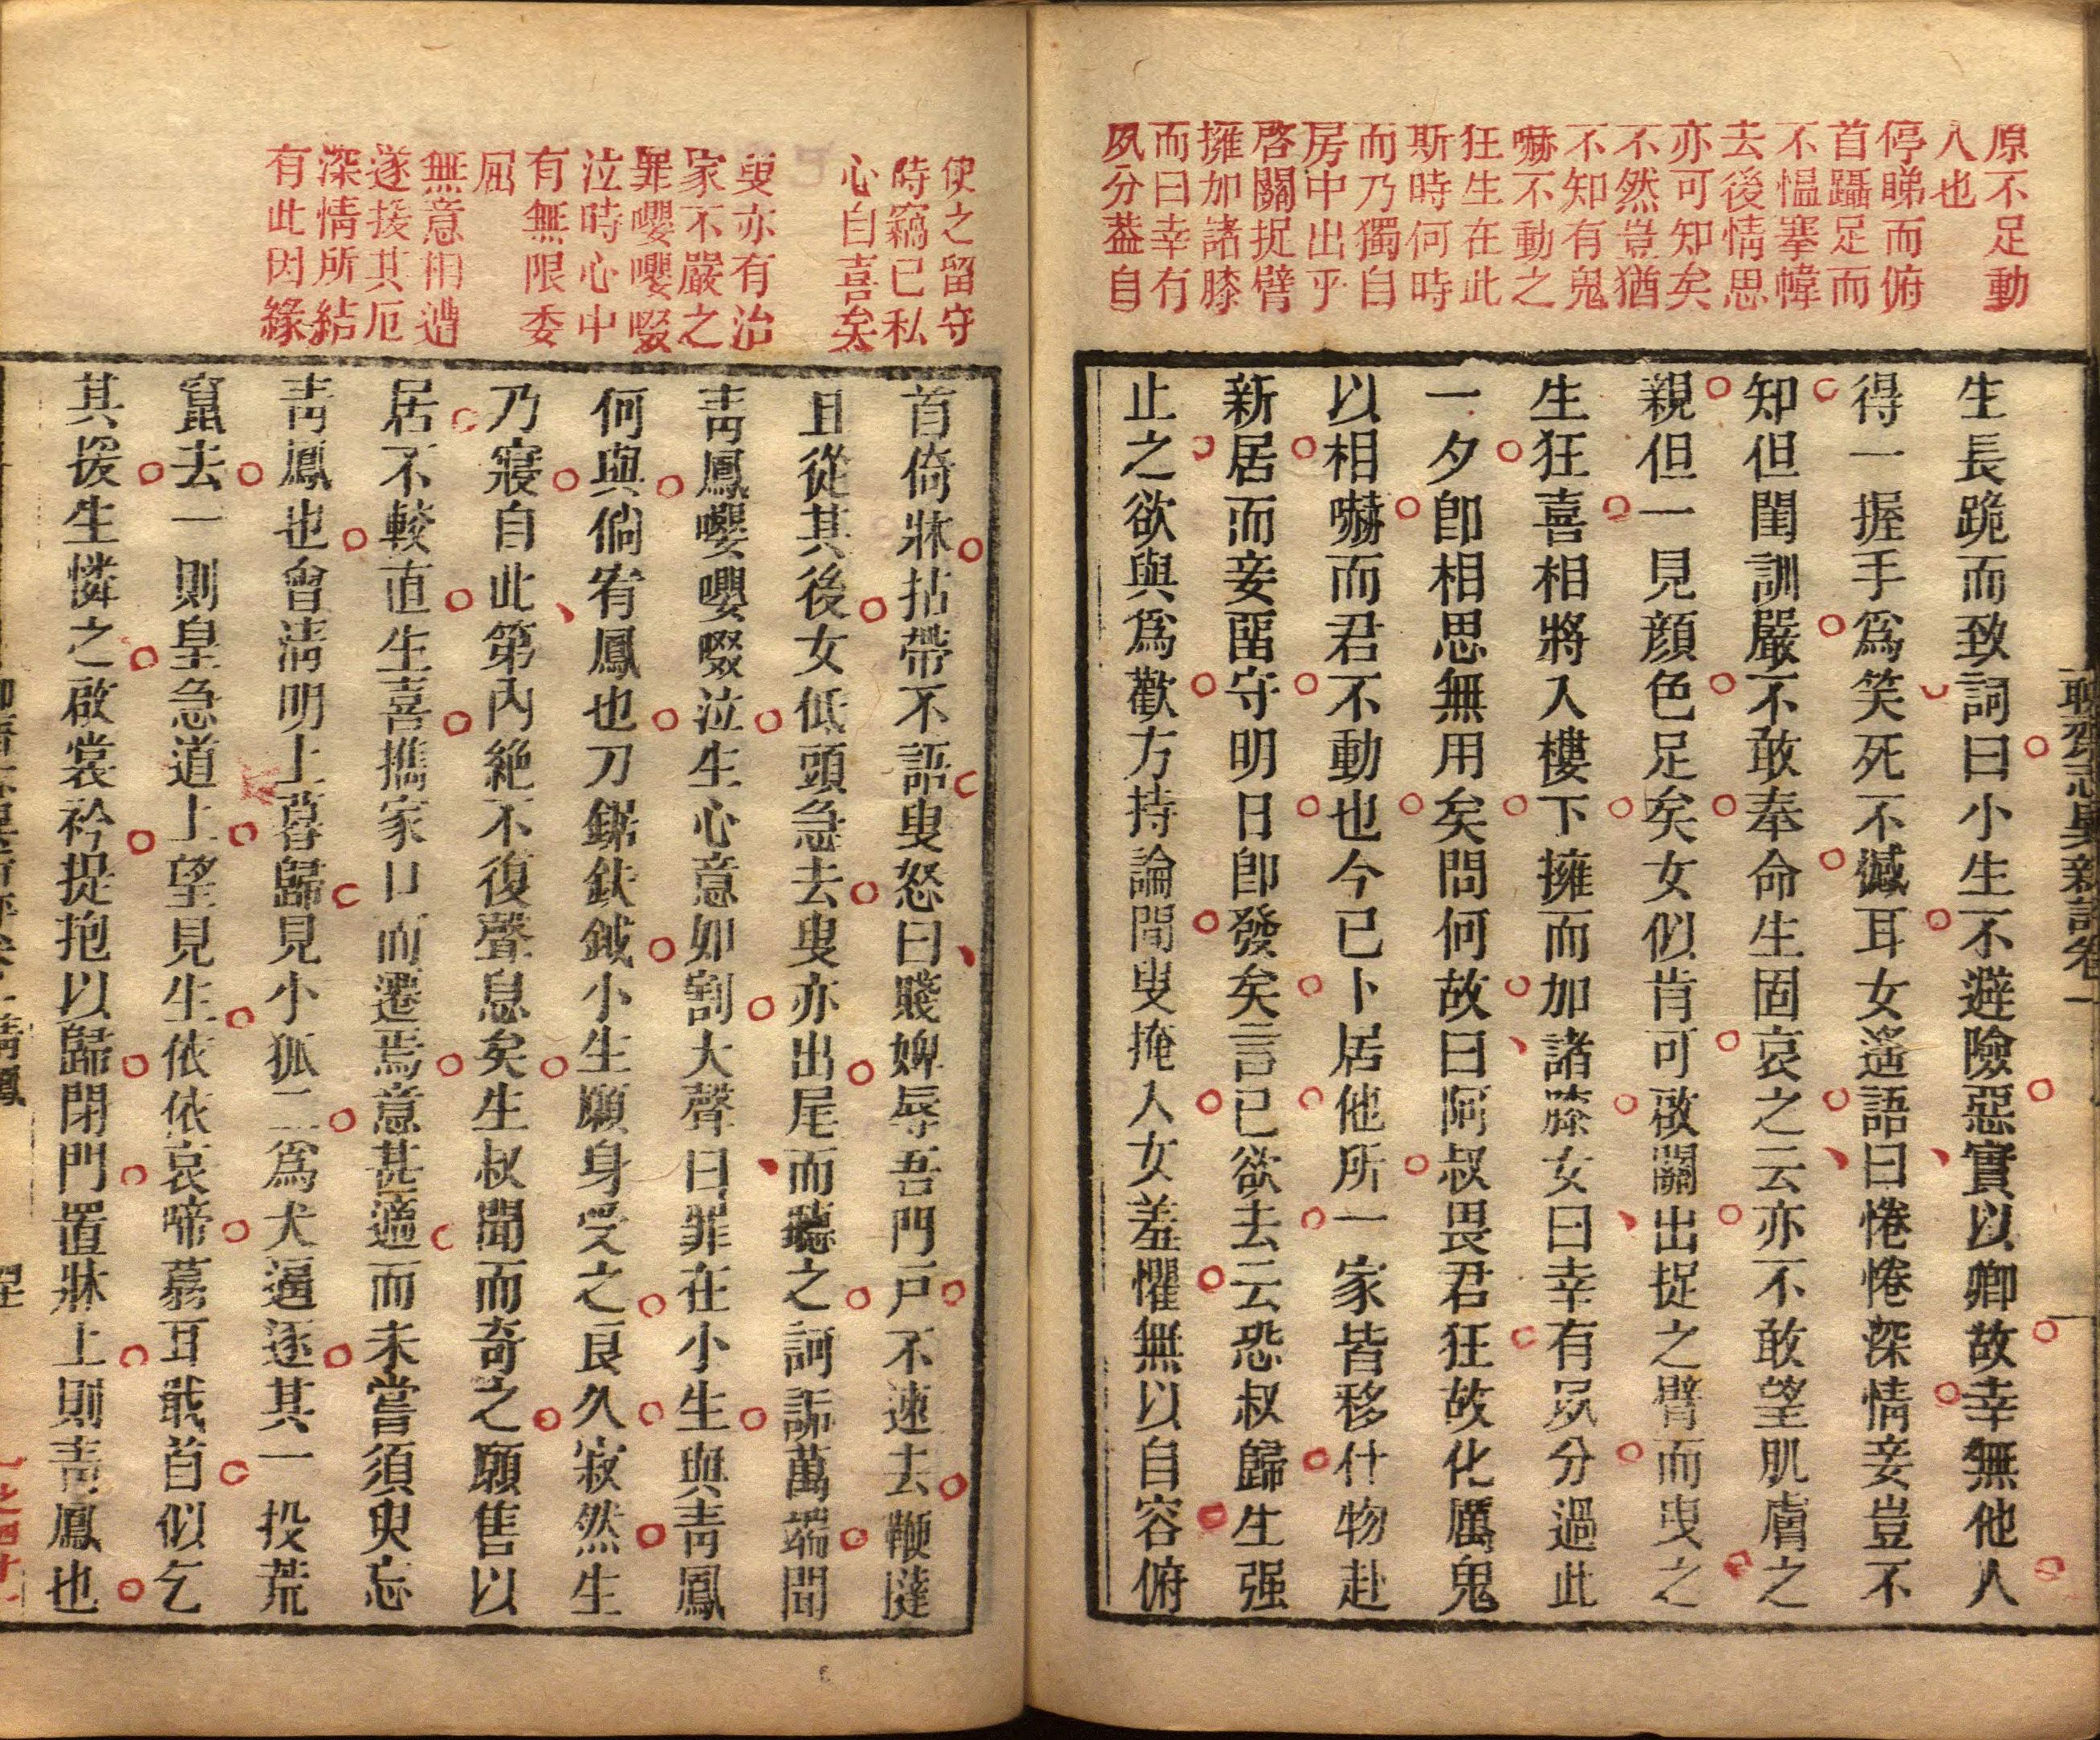 原不足動
人也
停睇而俯
首躡足而
不愠搴幃
去後情思
亦可知矣
不然豈猶
不知有鬼
嚇不動之
狂生在此
斯時何時
而乃獨自
房中出乎
啓關捉臂
擁加諸膝
而曰幸有
夙分葢自
聊齋志異新評卷一
生長跪而致詞曰小生不避險惡實以卿故幸無他人
得一握手爲笑死不憾耳女遙語曰惓惓深情妾豈不
知但閨訓嚴不敢奉命生固哀之云亦不敢望肌膚之
親但一見顔色足矣女似肯可啟關出捉之臂而曳之
生狂喜相將入樓下擁而加諸膝女曰幸有夙分過此
一夕卽相思無用矣問何故曰阿叔畏君狂故化厲鬼
以相嚇而君不動也今已卜居他所一家皆移什物赴
新居而妾留守明日卽發矣言已欲去云恐叔歸生强
止之欲與爲歡方持論間叟掩入女羞懼無以自容俯
使之留守
時竊已私
心自喜矣
叟亦有治
家不嚴之
罪嚶嚶啜
泣時心中
有無限委
屈
無意相遭
遂援其厄
深情所結
有此因緣
首倚牀拈帶不語叟怒曰賤婢辱吾門戸不速去鞭撻
且從其後女低頭急去叟亦出尾而聽之訶詬萬端聞
靑鳳嚶嚶啜泣生心意如割大聲曰罪在小生與靑鳳
何與倘宥鳳也刀鋸鈇鉞小生願身受之良久寂然生
乃寢自此第內絶不復聲息矣生叔聞而奇之願售以
居不較直生喜攜家口而遷焉意甚適而未嘗須臾忘
靑鳳也會淸明上墓歸見小狐二爲犬逼逐其一投荒
竄去一則皇急道上望見生依依哀啼䓪耳戢首似乞
其援生憐之啟裳衿提抱以歸閉門置牀上則靑鳳也